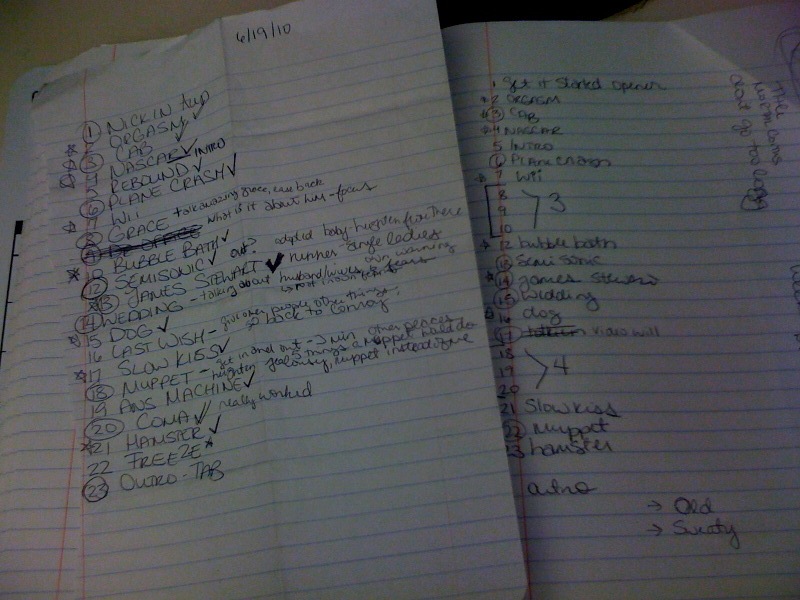 6/19/10
1 NICK IN
ORGASM ✓
3 CAB ✓
4 NASCAR INTRO
5 REBOUND ✓
6 PLANE CRASH ✓
WII
GRACE talk amazing grace, come back
what is it about him - focus
BUBBLE BATH ✓
12 SEMISONIC ✓ out? adopted baby - heighten from there
13 JAMES STEWART ✓ runner single ladies
14 WEDDING - talking about husband/wives own wedding
15 DOG ✓
16 LAST WISH - give other people other things,
go back to
17 SLOW KISS ✓
18 MUPPET - get in and out - 2 min other places
heighten jealousy, muppet instead of me
5 things a muppet would do
19 ANS MACHINE ✓
20 COMA ✓ really worked
21 HAMSTER ✓
22 FREEZE *
23 OUTRO - TAB
1 get it started opener
2 ORGASM
3 CAB
4 NASCAR
5 INTRO
6 PLANE CRASH
7 Wii
8
9 3
10
12 bubble bath
13 Semi Sonic
14 james stewart
15 wedding
16 dog
17 video will
18
19 4
20
21 Slow kiss
22 muppet
23 hamster
outro
→ Old
→ Sweaty
dont go too long